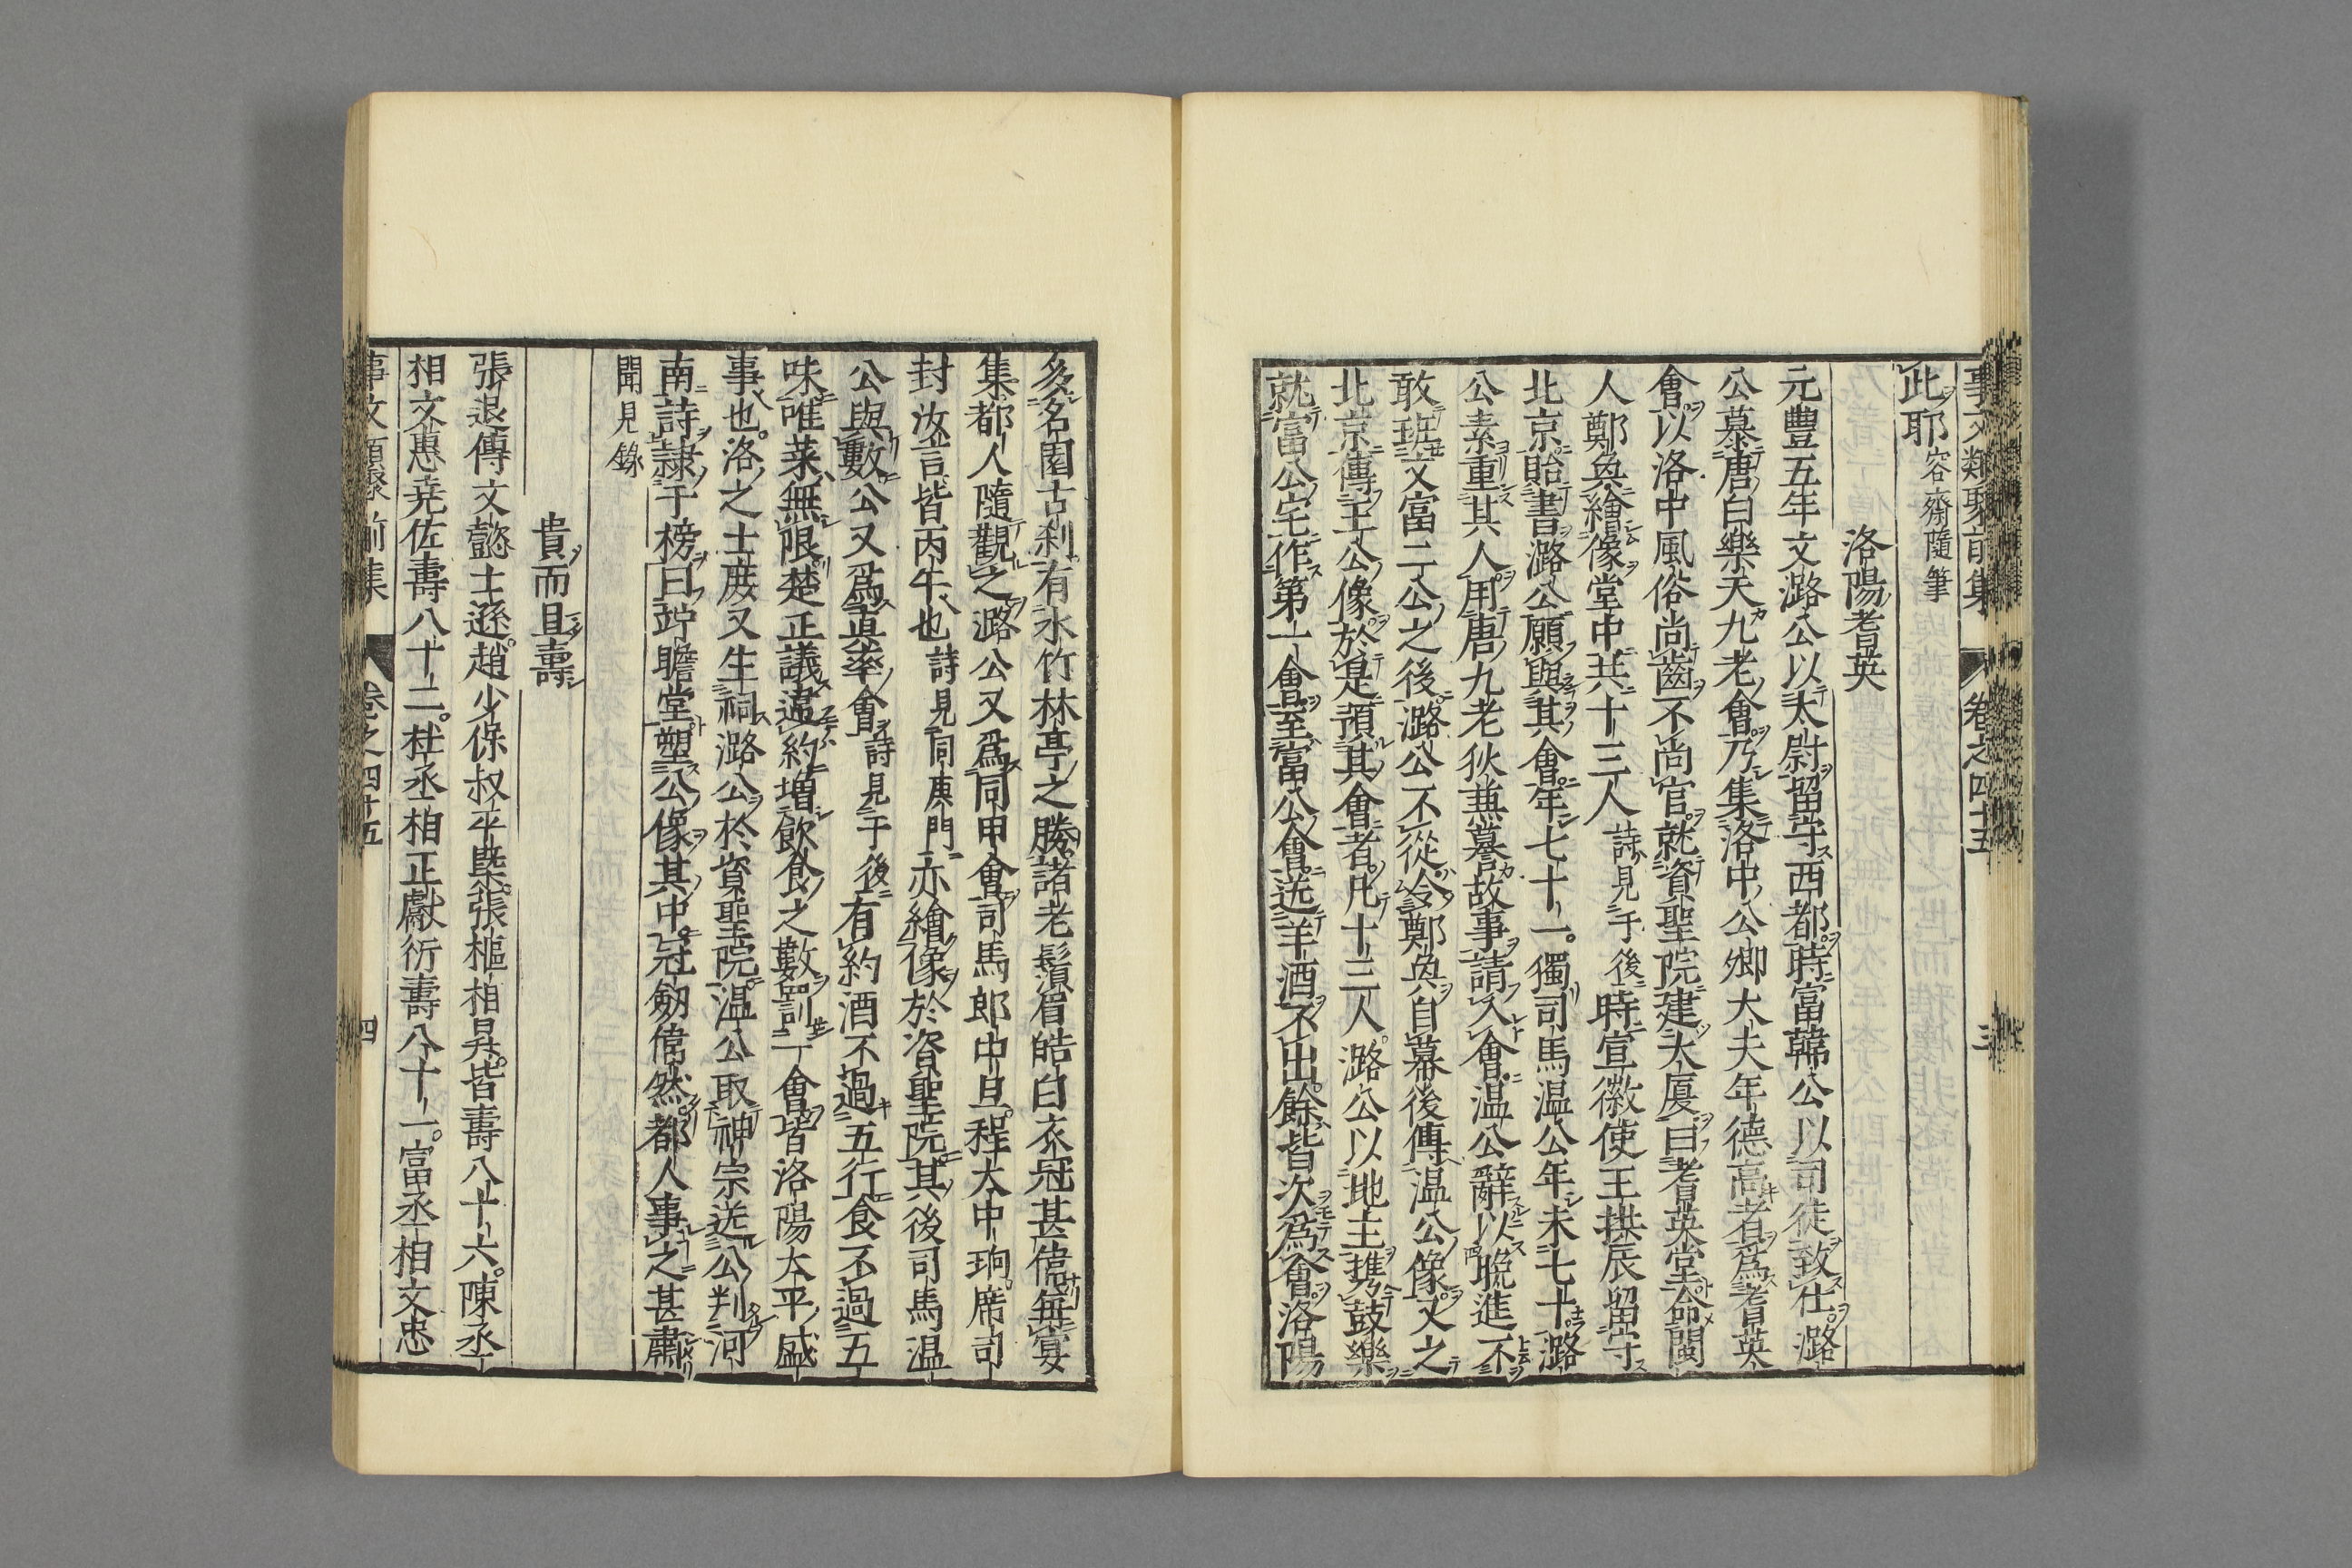 事文類聚前集 卷之四十五 三
此耶容齋隨筆
洛陽耆英
元豐五年文潞公以太尉留守西都時富韓公以司徒致仕潞
公慕唐白樂天九老會乃集洛中公卿大夫年德高者為耆英
會以洛中風俗尚齒不尚官就資聖院建大厦曰耆英堂命閩
人鄭奐繪像堂中共十三人詩見于後時宣徽使王拱辰留守
北京貽書潞公願與其會年七十一獨司馬温公年未七十潞
公素重其人用唐九老狄兼謩故事請入會温公辭以晩進不
敢班文富二公之後潞公不從令鄭奐自幕後傳温公像又之
北京傳王公像於是預其會者凡十三人潞公以地主携鼓樂
就富公宅作第一會至富公會送羊酒不出餘皆次為會洛陽
多名園古刹有水竹林亭之勝諸老鬚眉皓白衣冠甚偉每宴
集都人隨觀之潞公又為同甲會司馬郎中旦程大中珦席司
封汝言皆丙午也詩見同庚門亦繪像於資聖院其後司馬温
公與數公又為真率會詩見于後有約酒不過五行食不過五
味唯菜無限楚正議違約増飲食之數罰一會皆洛陽太平盛
事也洛之士庶又生祠潞公於資聖院温公取神宗送公判河
南詩隷于榜曰竚瞻堂塑公像其中冠劒偉然都人事之甚肅
聞見錄
貴而且壽
張退傅文懿士遜趙少保叔平槩張樞相昇皆壽八十六陳丞
相文惠堯佐壽八十二杜丞相正獻衍壽八十一富丞相文忠
事文類聚前集 卷之四十五 四